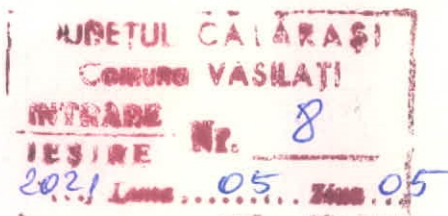 JUDEȚUL CĂLĂRAȘI
Comuna VASILAȚI
INTRARE
IEȘIRE Nr. 8
2021 Luna 05 Ziua 05